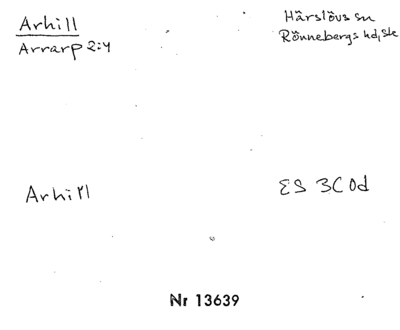 Arhill
Arrarp 2:4
Härslövs sn
Rönnebergs hd, Sk
Arhill
ES 3C0d
Nr 13639